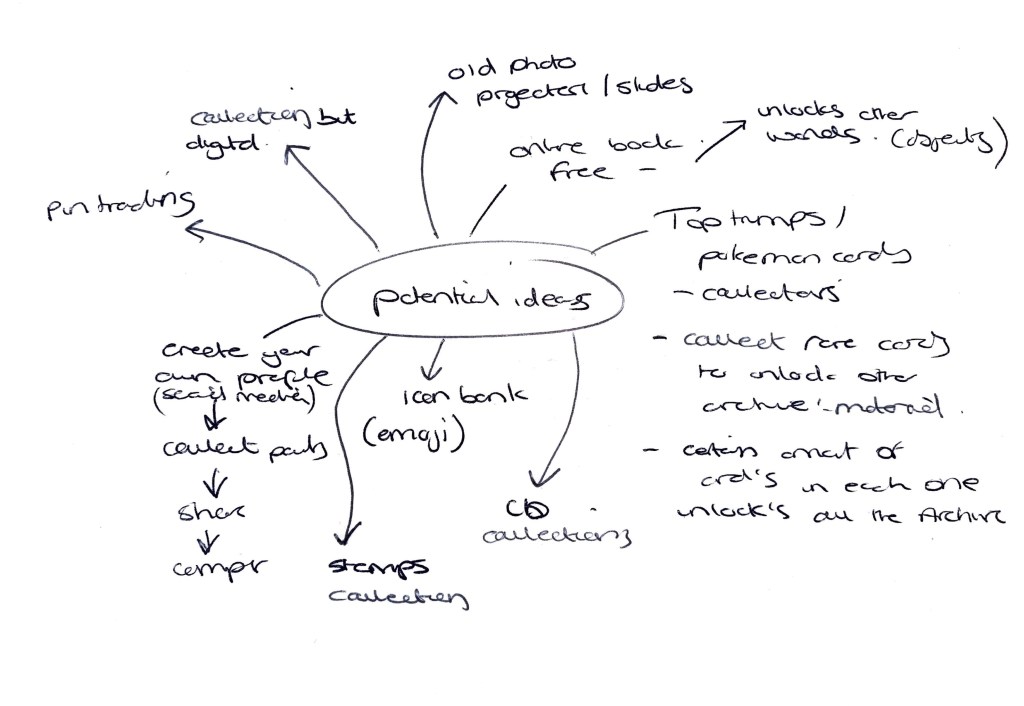 old photo
projecters / slides
collections but
digital.
online book.
free -
unlocks other
words. (objects)
pin trading
Top trumps /
pokemon cards
- collectors
potential ideas
- collect rare cards
to unlock other
archive material.
create your
own profile
(social media)
collect parts
share
icon bank
(emoji)
- certain amount of
card's in each one
unlock's all the Archive
collections
stamps
collections